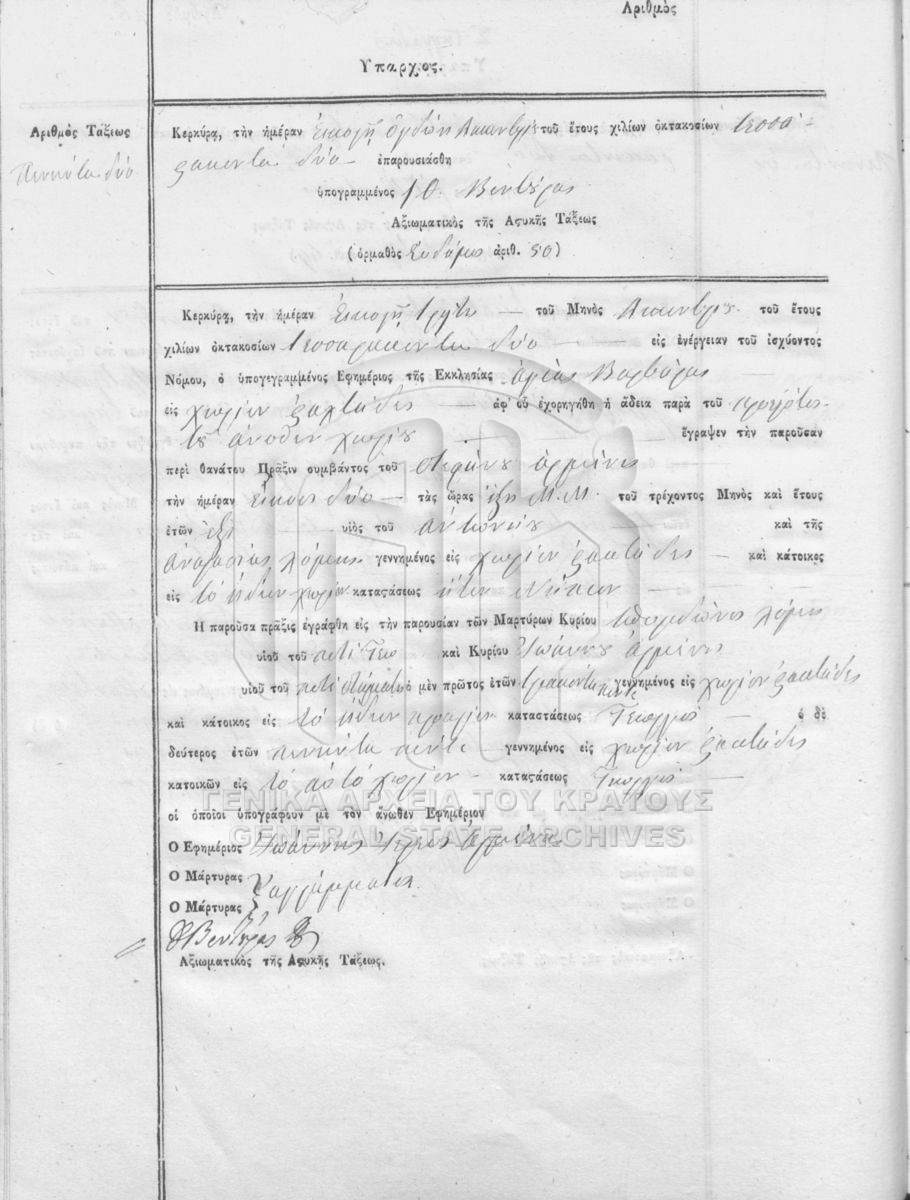 Αριθμὸς
Υπαρχος.
Αριθμὸς Τάξεως
πεννήντα δύο
Κερκύρᾳ, τὴν ἡμέραν εἰκοσῆ ὀγδόη Δικεμβρίȣ τοῦ ἔτους χιλίων ὀκτακοσίων τεσσα-
ράκοντα δύο ἐπαρουσιάσθη
ὑπογραμμένος Βεντȣρας
Αξιωματικὸς τῆς Αςυκῆς Τάξεως
(ὁρμαθὸς ἀριθ. 50)
Κερκύρᾳ, τὴν ἡμέραν εἰκοσῆ τρήτη τοῦ Μηνὸς Δικεμβρίȣ τοῦ ἔτους
χιλίων ὀκτακοσίων τεσσαράκοντα δύο εἰς ἐνέργειαν τοῦ ἰσχύοντος
Νόμου, ὁ ὑπογεγραμμένος Εφημέριος τῆς Εκκλησίας ἁγίας Βαρβάρας
εἰς χωρίον ῥαχτάδες ἀφ' οὗ ἐχορηγήθη ἡ ἄδεια παρὰ τοῦ
τȣ ἄνοθεν χωρίȣ ἔγραψεν τὴν παροῦσαν
περὶ θανάτου Πρᾶξιν συμβάντος τοῦ στεφάνȣ ἀρμένης
τὴν ἡμέραν εἴκοσι δύο τὰς ὥρας ἕξη Μ.Μ. τοῦ τρέχοντος Μηνὸς καὶ ἔτους
ἐτῶν ἕξι υἱὸς τοῦ ἀντωνίȣ καὶ τῆς
ἀναστασίας λόμης γεννημένος εἰς χωρίον ῥαχτάδες καὶ κάτοικος
εἰς τὸ ἤδιον χωρίον καταςάσεως ἦτον νήπιον
Η παροῦσα πρᾶξις ἐγράφθη εἰς τὴν παρουσίαν τῶν Μαρτύρων Κυρίου σπυρηδώνης λόμης
υἱοῦ τοῦ ποτὲ Γεω καὶ Κυρίου Ἰωάννȣ ἀρμένης
υἱοῦ τοῦ ποτὲ σταμάτη ὁ μὲν πρῶτος ἐτῶν τριάκοντα πέντε γεννημένος εἰς χωρίον ῥαχτάδες
καὶ κάτοικος εἰς τὸ ἤδιον χωρίον καταστάσεως Γεωργὸς ὁ δὲ
δεύτερος ἐτῶν πεννήντα πέντε γεννημένος εἰς χωρίον ῥαχτάδες
κατοικῶν εἰς τὸ αὐτὸ χωρίον καταςάσεως Γεωργὸς
οἱ ὁποῖοι ὑπογράφουν μὲ τὸν ἄνωθεν Εφημέριον
Ο Εφημέριος Ἰωάννης Ἱερεὺς ἀρμένης
Ο Μάρτυρας
ἀγράμματοι
Ο Μάρτυρας
Βεντȣρας
Αξιωματικὸς τῆς Αςυκῆς Τάξεως.
ΓΕΝΙΚΑ ΑΡΧΕΙΑ ΤΟΥ ΚΡΑΤΟΥΣ
GENERAL STATE ARCHIVES